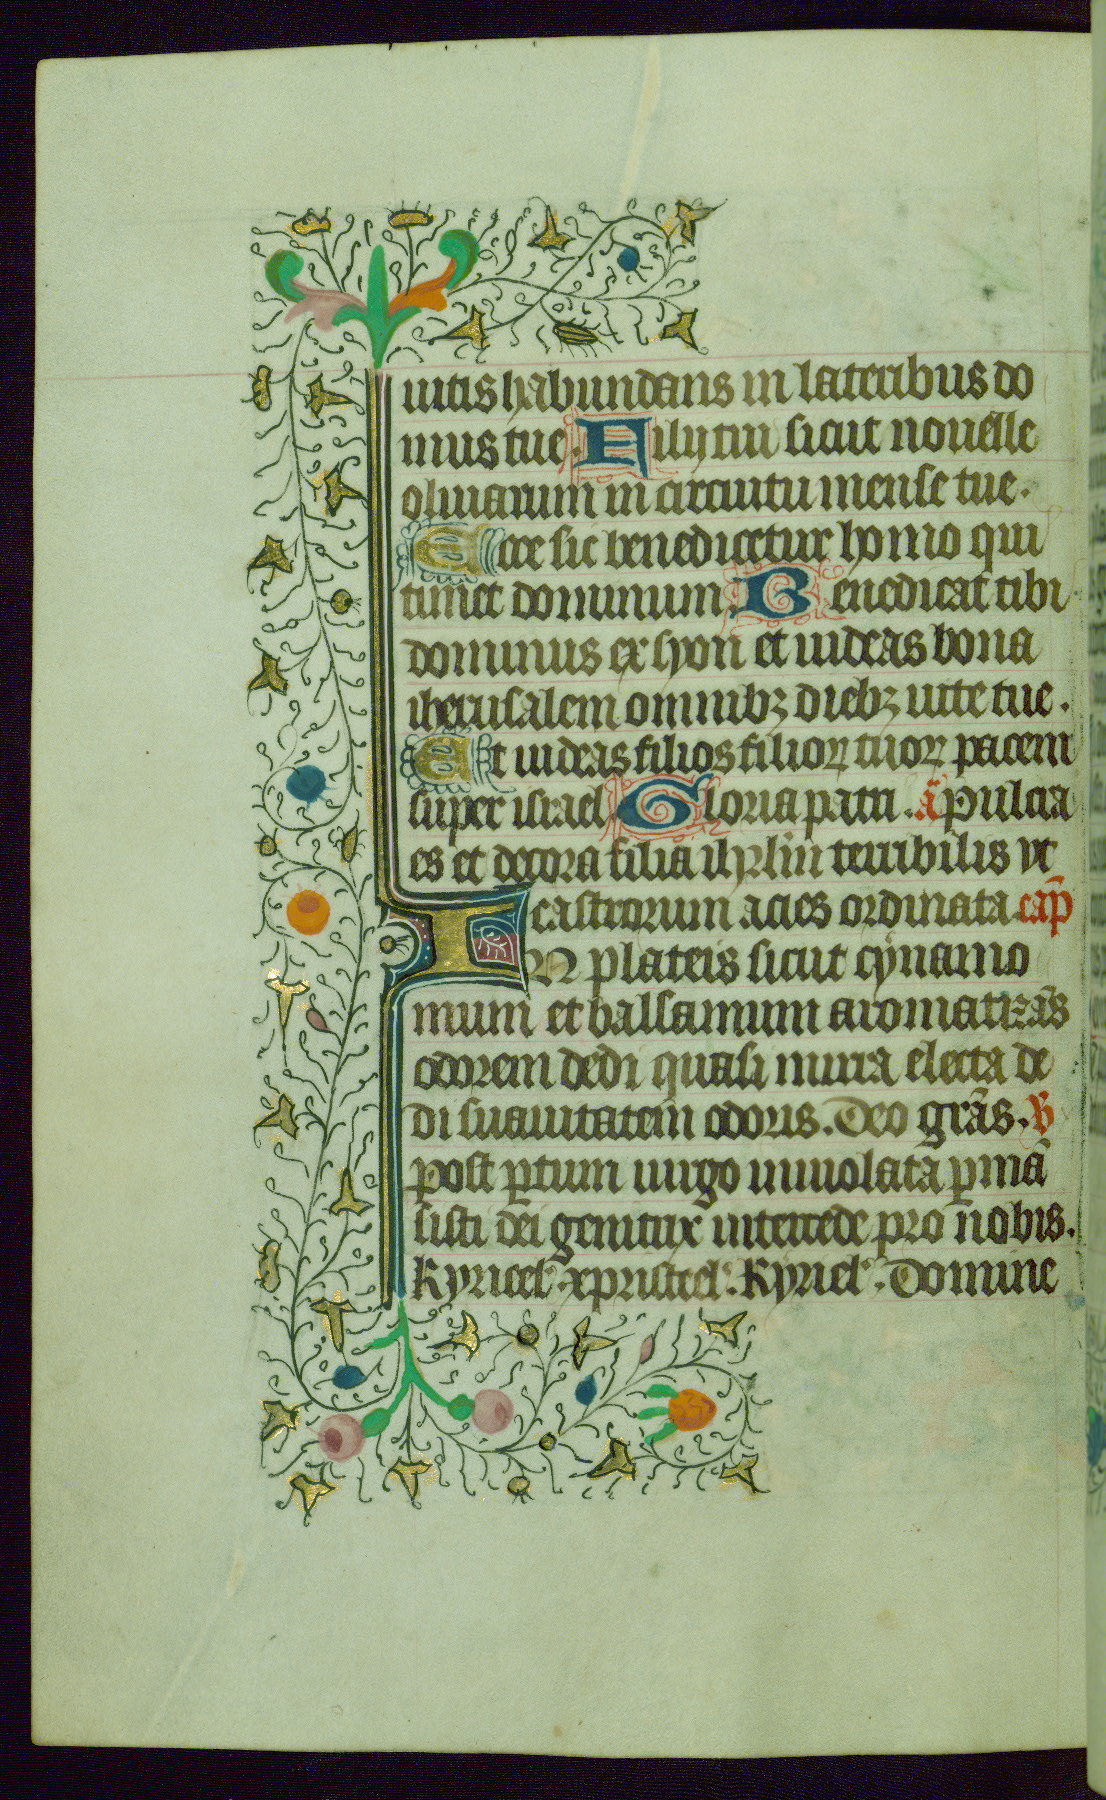 uitis habundans in lateribus do
mus tue. Filij tui sicut nouelle
oliuarum in circuitu mense tue.
Ecce sic benedicetur homo qui
timet dominum. Benedicat tibi
dominus ex syon et uideas bona
iherusalem omnibꝫ diebꝫ uite tue.
Et uideas filios filioꝝ tuoꝝ pacem
super israel Gloria patri. ā Pulcra
es et decora filia ihrlm̄ terribilis vt
castrorum acies ordinata cap̄
IN plateis sicut cynamo
mum et balsamum aromatizās
odorem dedi quasi mirra electa de
di suauitatem odoris. Deo grās. ꝟ
post ꝑtum uirgo inuiolata ꝑmā
sisti dei genitrix intercede pro nobis.
Kyrieel'. xpristeel'. Kyriel'. Domine